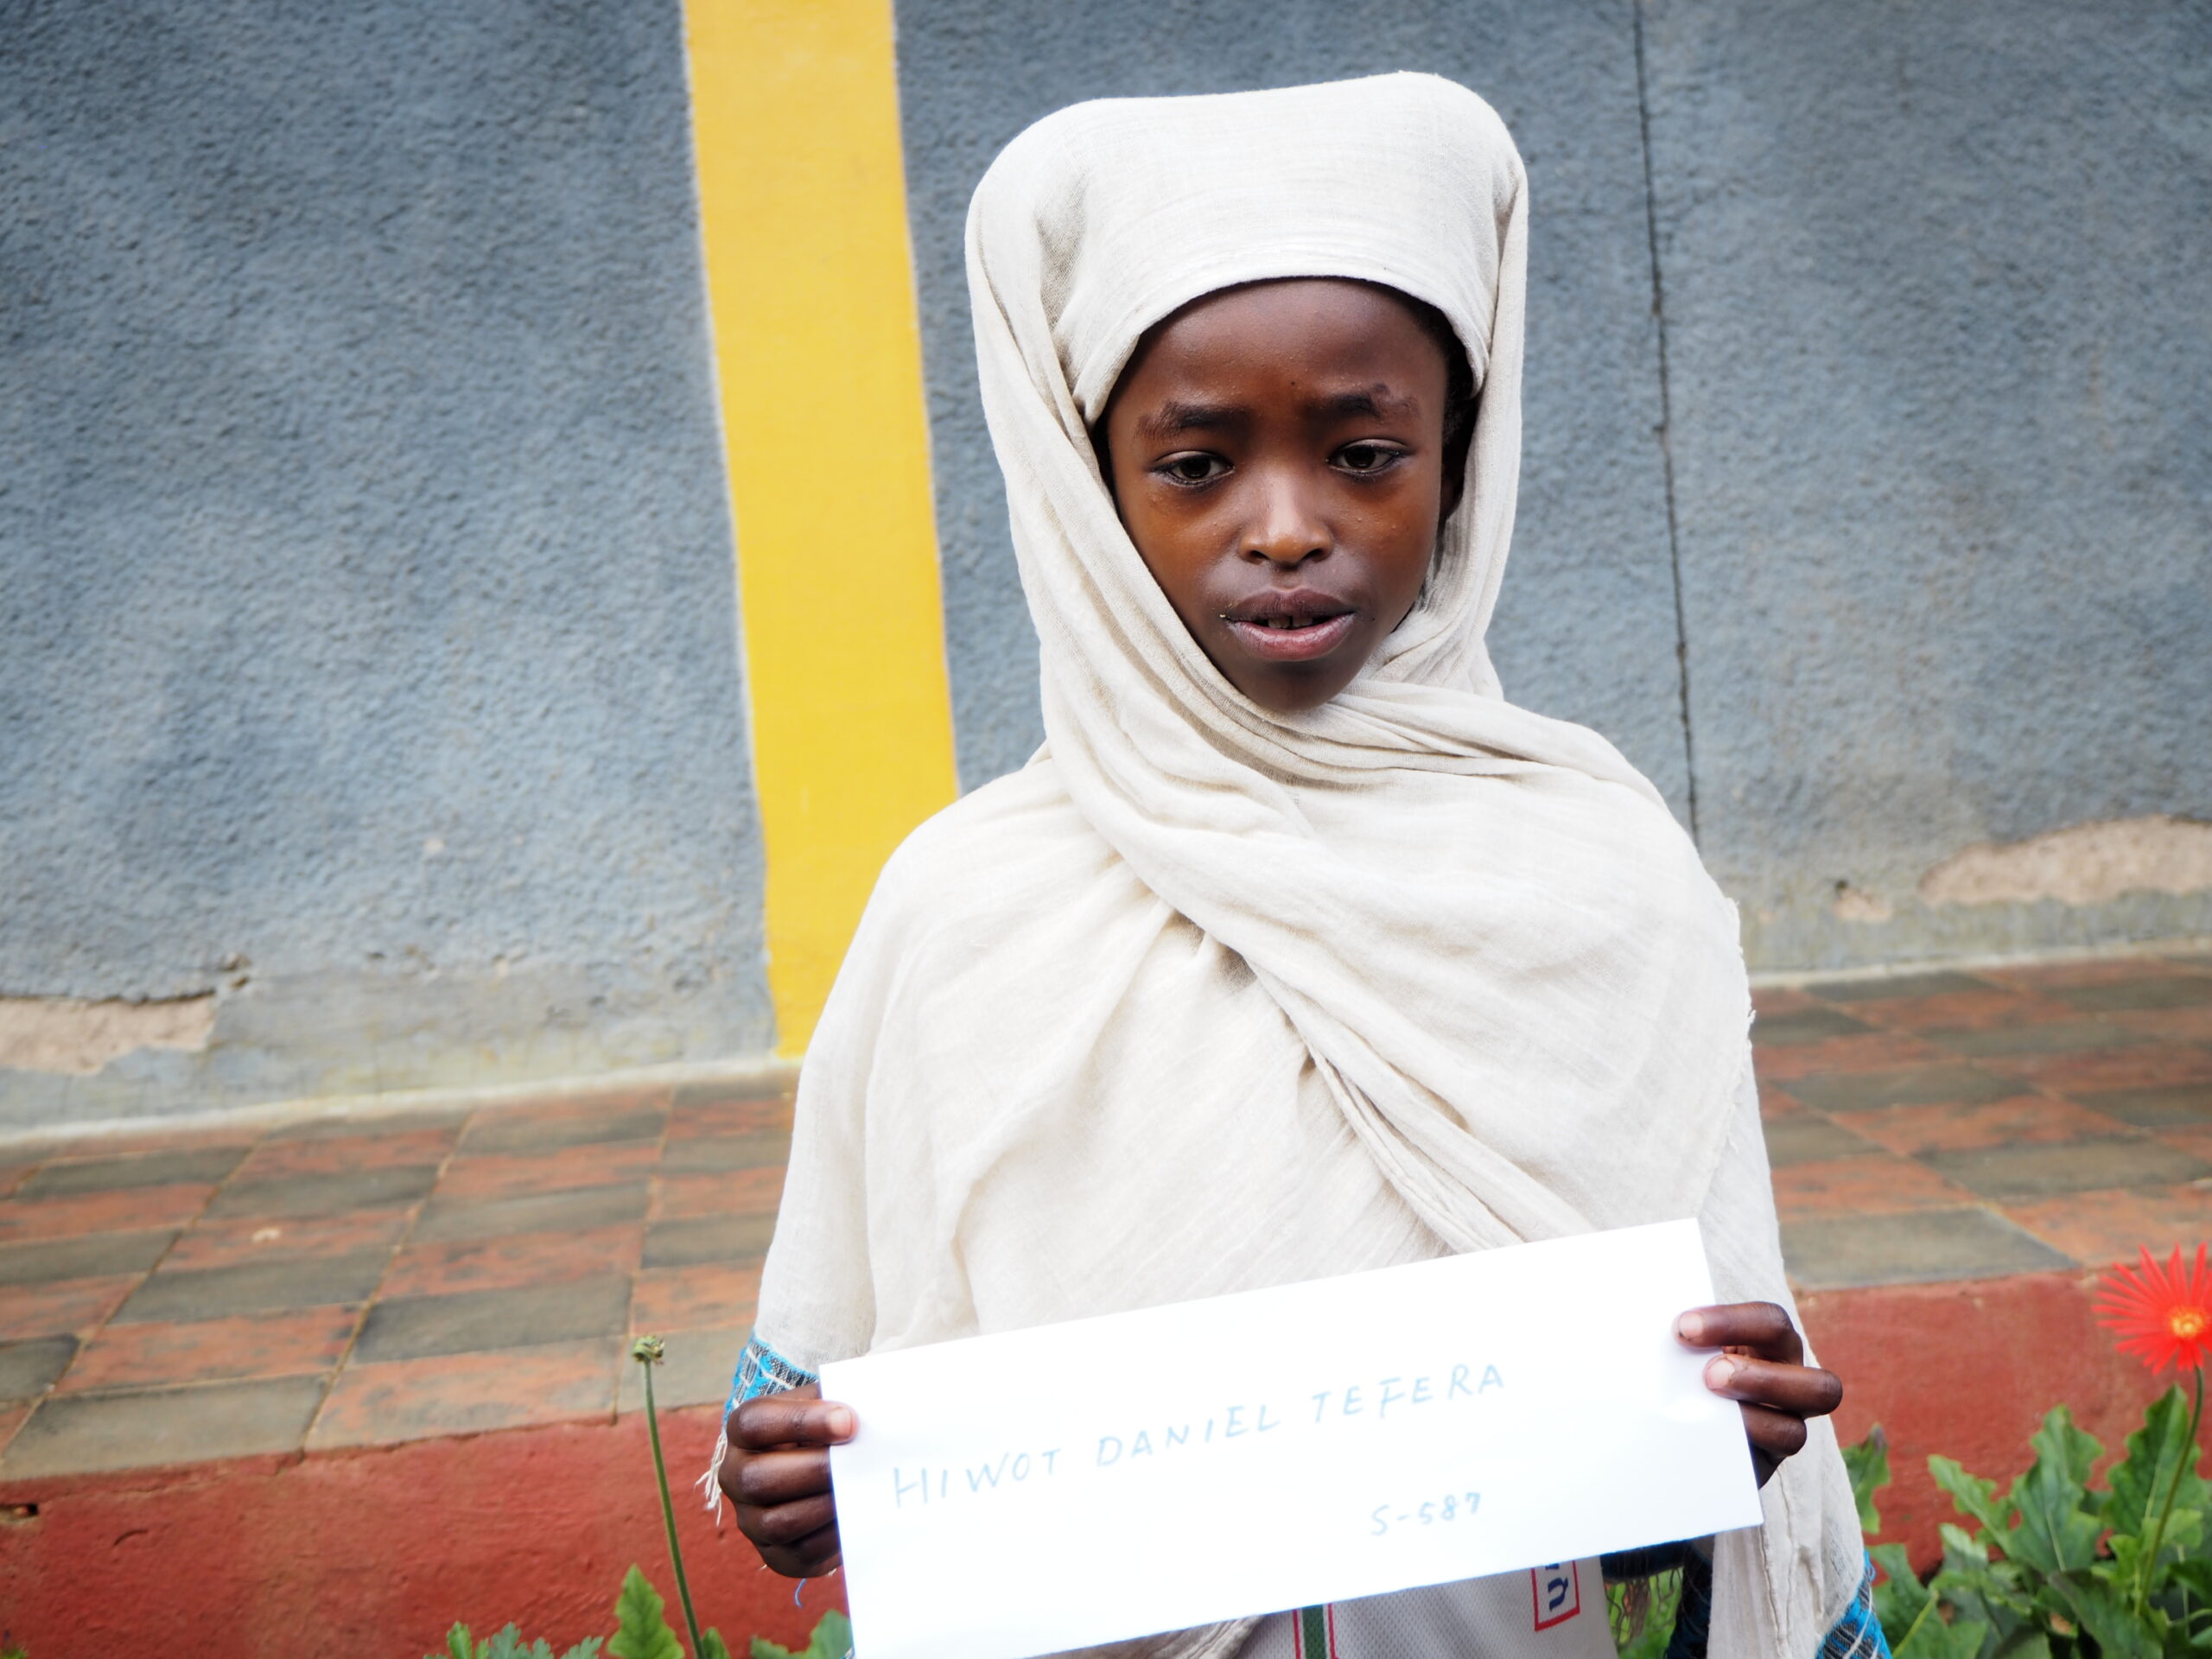 HIWOT DANIEL TEFERA
S-587